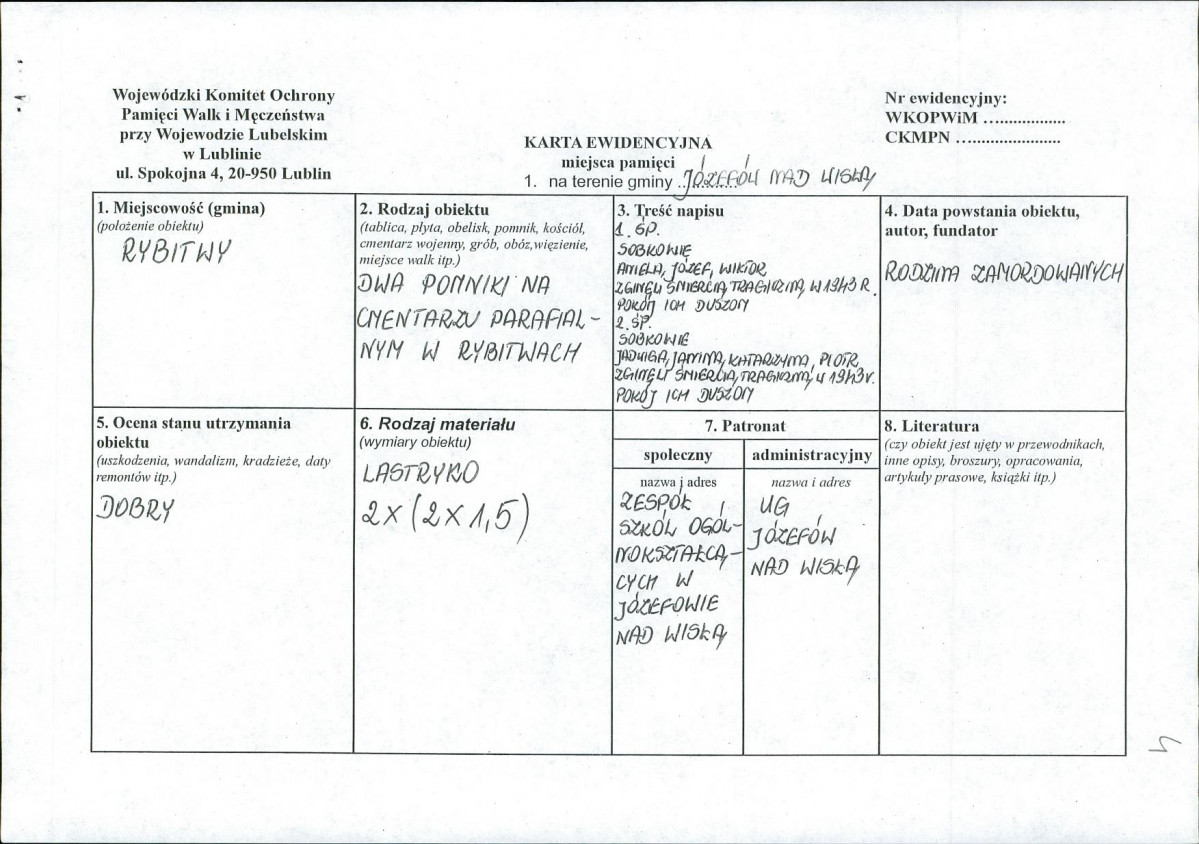 Wojewódzki Komitet Ochrony
Pamięci Walk i Męczeństwa
przy Wojewodzie Lubelskim
w Lublinie
ul. Spokojna 4, 20-950 Lublin
Nr ewidencyjny:
WKOPWiM .....................
CKMPN ........................
KARTA EWIDENCYJNA
miejsca pamięci
1. na terenie gminy ..JÓZEFÓW NAD WISŁĄ
1. Miejscowość (gmina)
(położenie obiektu)
RYBITWY
2. Rodzaj obiektu
(tablica, płyta, obelisk, pomnik, kościół,
cmentarz wojenny, grób, obóz,więzienie,
miejsce walk itp.)
DWA POMNIKI NA
CMENTARZU PARAFIAL-
NYM W RYBITWACH
3. Treść napisu
1. ŚP.
SOBKOWIE
ANIELA, JÓZEF, WIKTOR
ZGINĘLI ŚMIERCIĄ TRAGICZNĄ W 1943 R.
POKÓJ ICH DUSZOM
2. ŚP.
SOBKOWIE
JADWIGA, JANINA, KATARZYNA, PIOTR
ZGINĘLI ŚMIERCIĄ TRAGICZNĄ W 1943 r.
POKÓJ ICH DUSZOM
4. Data powstania obiektu,
autor, fundator
RODZINA ZAMORDOWANYCH
5. Ocena stanu utrzymania
obiektu
(uszkodzenia, wandalizm, kradzieże, daty
remontów itp.)
DOBRY
6. Rodzaj materiału
(wymiary obiektu)
LASTRYKO
2 X (2 X 1,5)
7. Patronat
społeczny
nazwa i adres
ZESPÓŁ
SZKÓŁ OGÓL-
NOKSZTAŁCĄ-
CYCH W
JÓZEFOWIE
NAD WISŁĄ
administracyjny
nazwa i adres
UG
JÓZEFÓW
NAD WISŁĄ
8. Literatura
(czy obiekt jest ujęty w przewodnikach,
inne opisy, broszury, opracowania,
artykuły prasowe, książki itp.)
4